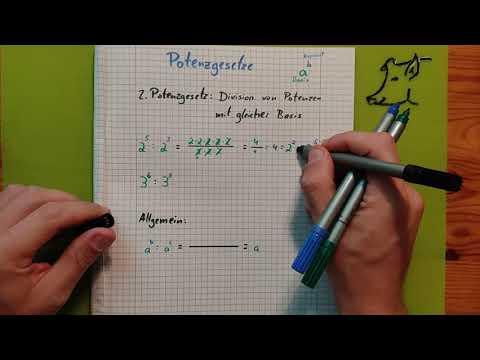 Potenzgesetze
a^b
Basis
2. Potenzgesetz: Division von Potenzen
mit gleicher Basis
2^5 : 2^3 = 2·2·2·2·2 / 2·2·2 = 4/1 = 4 = 2^2
3^6 : 3^3
Allgemein:
a^b : a^c = ——— = a